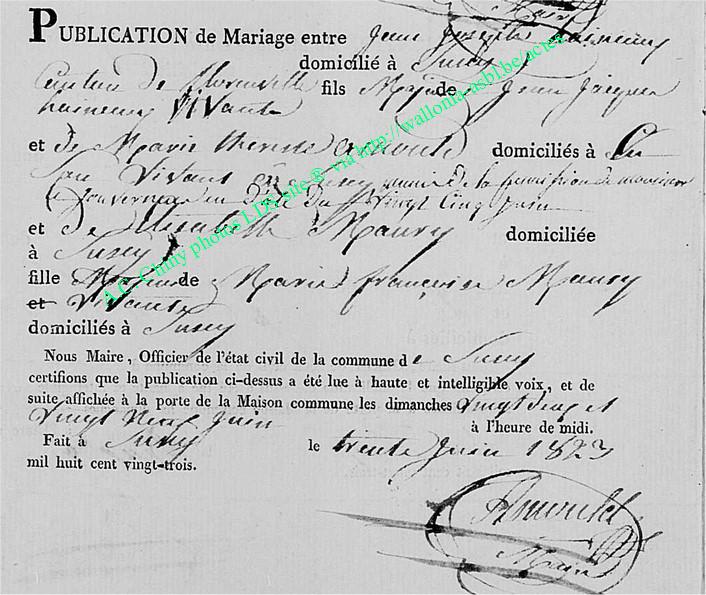 PUBLICATION de Mariage entre Jean Joseph
domicilié à Suxy
Canton de Florenville fils Majeur de Jean Jacques
Vivant
et de Marie therese domiciliés à
Vivant munié de la permission de monsieur
le gouverneur en Date du Vingt Cinq Juin
et de Elisabette Maury domiciliée
à Suxy
fille Majeure de Marie françoise Maury
et Vivante
domiciliés à Suxy
Nous Maire, Officier de l'état civil de la commune de Suxy
certifions que la publication ci-dessus a été lue à haute et intelligible voix, et de
suite affichée à la porte de la Maison commune les dimanches Vingt deux et
Vingt Neuf Juin à l'heure de midi.
Fait à Suxy le trente Juin 1823
mil huit cent vingt-trois.
A.C. Chiny photos LDS site ® via http://wallonia-asbl.be/actes